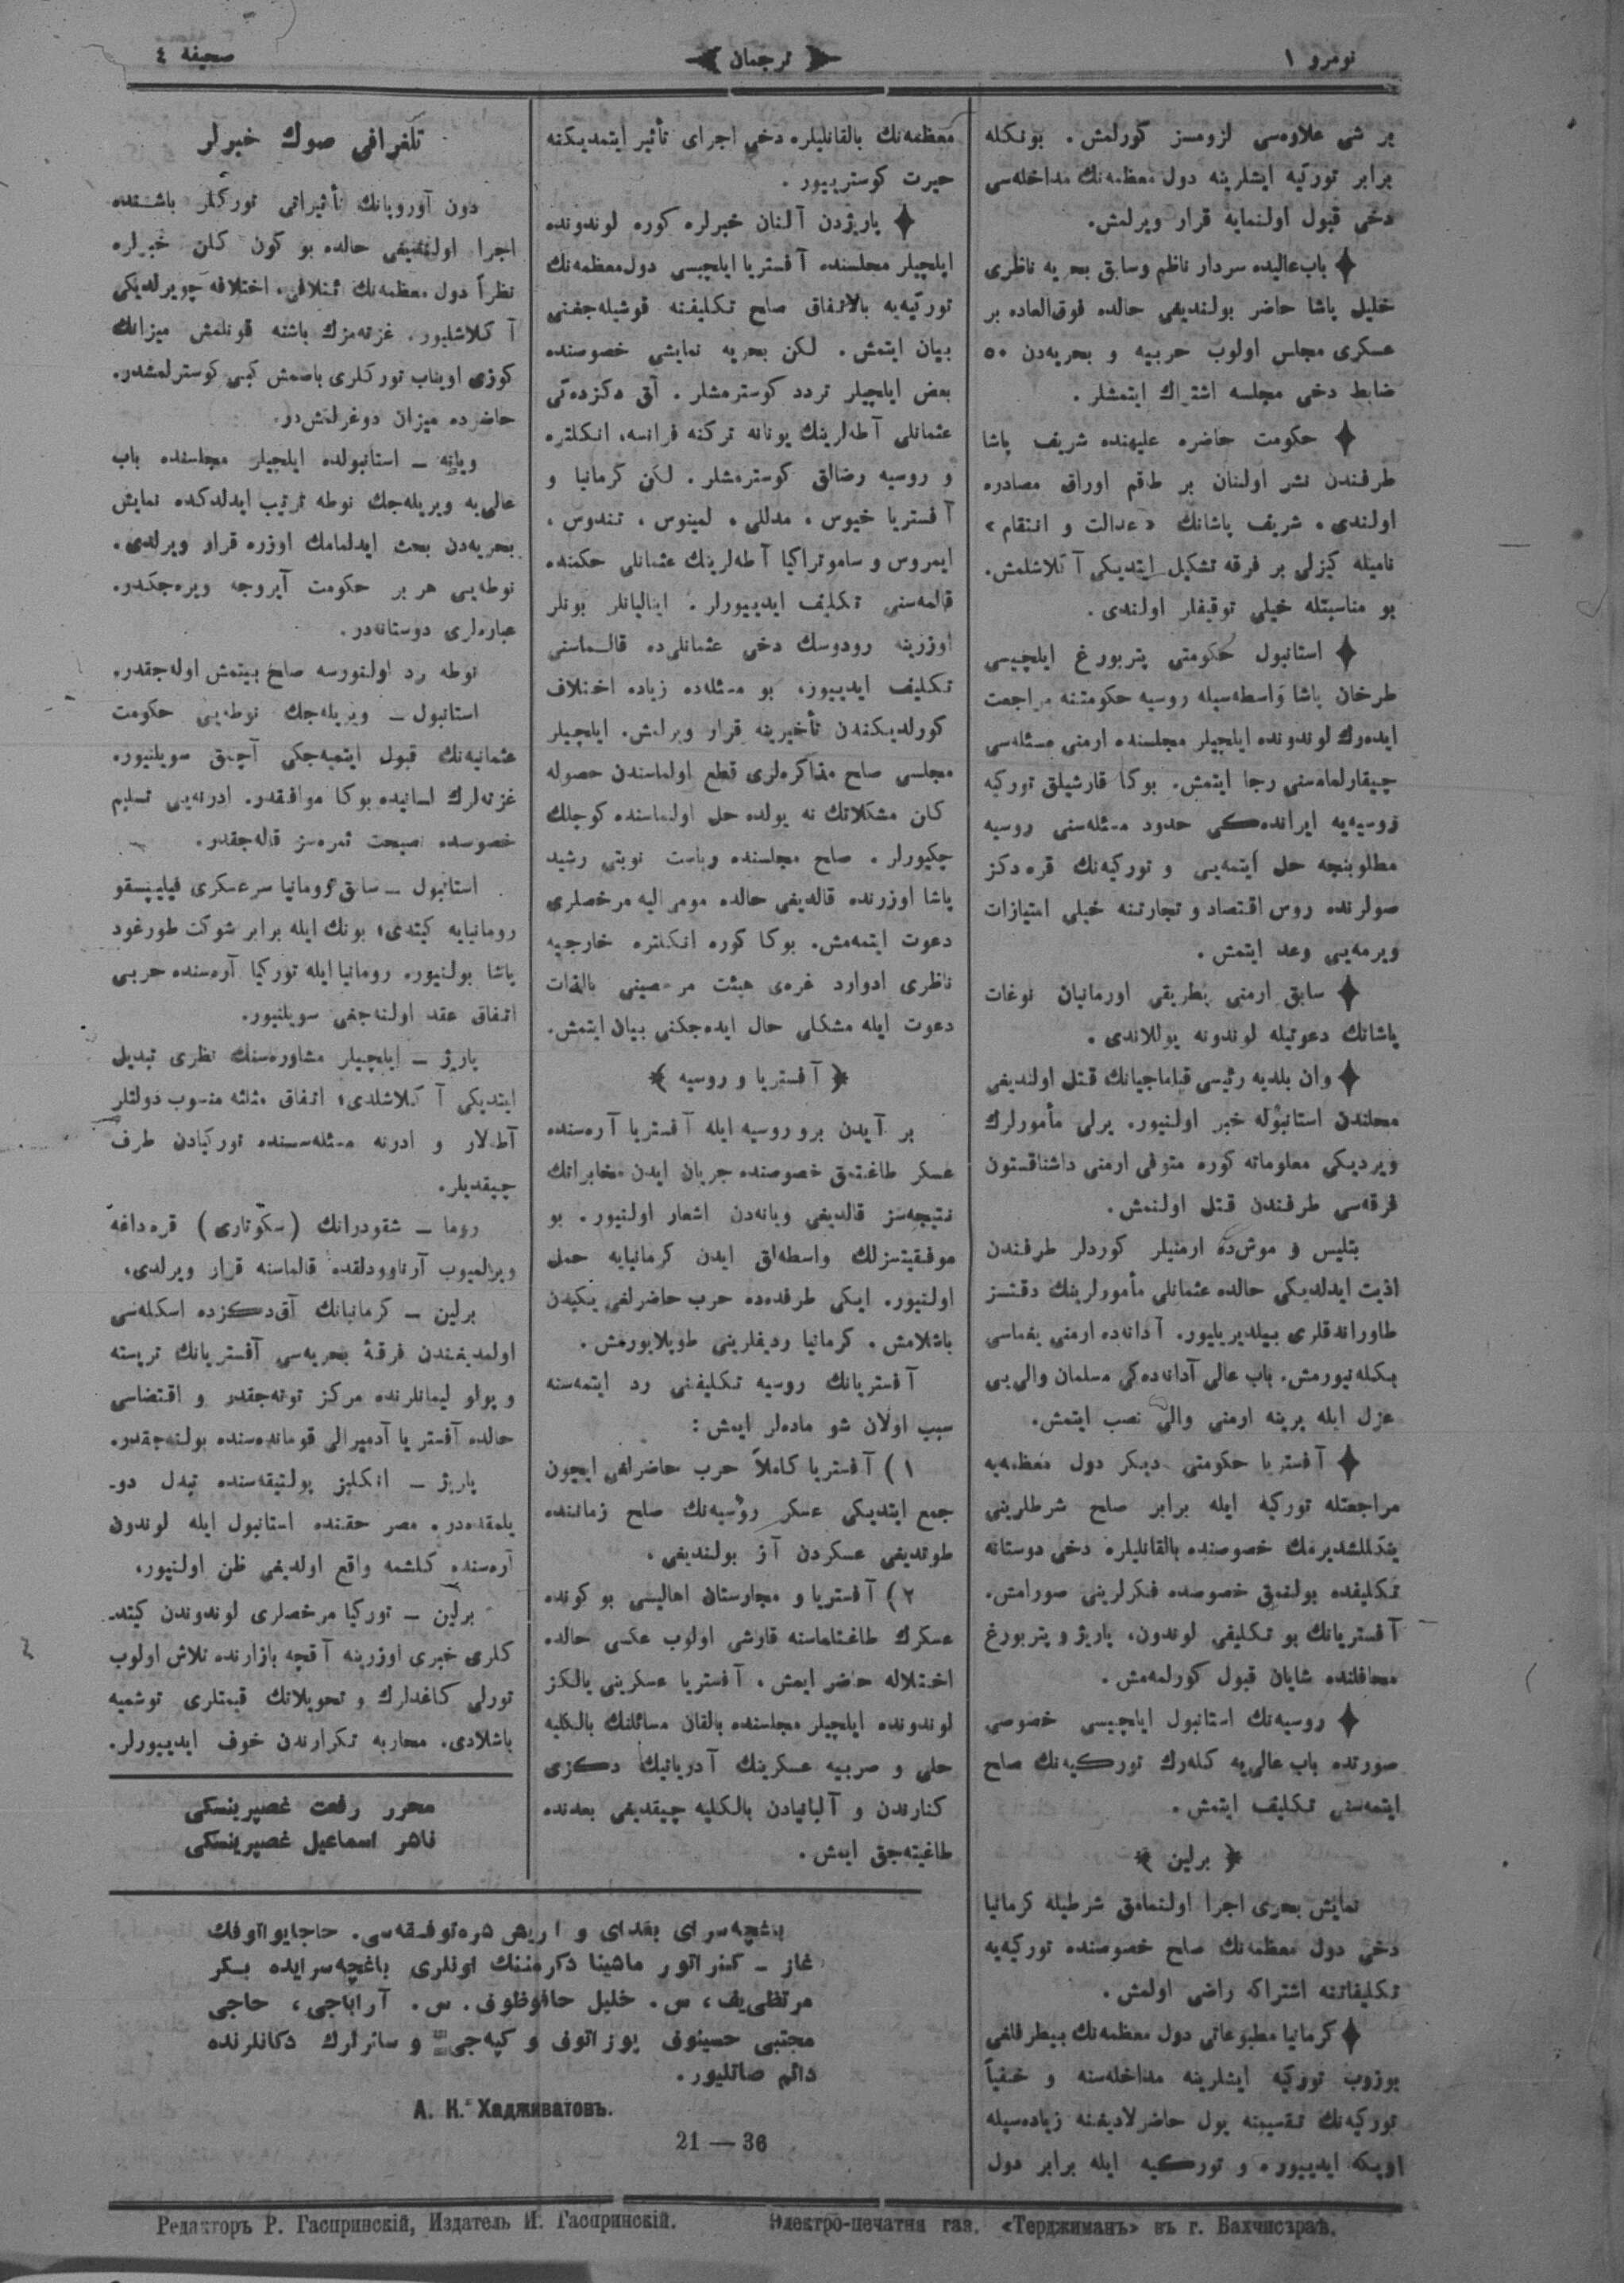 نومرو ١
ترجمان
صحيفه ٤
بر شی علاوه‌سی لزومسز كورلمش. بونكله
برابر توركيه ايشلرينه دول معظمه‌نك مداخله‌سی
دخی قبول اولنمايه قرار ويرلمش.
باب‌عاليده سردار ناظم وسابق بحريه ناظری
خليل پاشا حاضر بولنديغی حالده فوق‌العاده بر
عسكری مجلس اولوب حربيه و بحريه‌دن ٥٠
ضابط دخی مجلسه اشتراك ايتمشلر.
حكومت حاضره عليهنده شريف پاشا
طرفندن نشر اولنان بر طاقم اوراق مصادره
اولندی. شريف پاشانك «عدالت و انتقام»
ناميله كيزلی بر فرقه تشكيل ايتديكی آڭلاشلمش.
بو مناسبتله خيلی توقيفلر اولندی.
استانبول حكومتی پتربورغ ايلچيسی
طرخان پاشا واسطه‌سيله روسيه حكومتنه مراجعت
ايده‌رك لوندونده ايلچيلر مجلسنده ارمنی مسئله‌سی
چيقارلمامه‌سنی رجا ايتمش. بوكا قارشيلق توركيه
روسيه‌يه ايرانده‌كی حدود مسئله‌سنی روسيه
مطلوبنچه حل ايتمه‌يی و توركيه‌نك قره دكز
صولرنده روس اقتصاد و تجارتنه خيلی امتيازات
ويرمه‌يی وعد ايتمش.
سابق ارمنی بطريقی اورمانيان نوغات
پاشانك دعوتيله لوندونه يوللاندی.
وان بلديه رئيسی قپاماجيانك قتل اولنديغی
محلندن استانبوله خبر اولنيور. يرلی مأمورلرك
ويرديكی معلوماته كوره متوفی ارمنی داشناقستون
فرقه‌سی طرفندن قتل اولنمش.
بتليس و موش‌ده ارمنيلر كوردلر طرفندن
اذيت ايدلديكی حالده عثمانلی مأمورلرينك دقتسز
طاوراندقلری بيلديريليور. آدانه‌ده ارمنی يغماسی
بكله‌نيورمش. باب عالی آدانه‌ده‌كی مسلمان والی‌يی
عزل ايله يرينه ارمنی والی نصب ايتمش.
آفستريا حكومتی ديكر دول معظمه‌يه
مراجعتله توركيه ايله برابر صلح شرطلرينی
خصوصنده بالقانليلره دخی دوستانه
تكليفده بولنمق خصوصده فكرلرينی صورامش.
آفستريانك بو تكليفی لوندون، پاريژ و پتربورغ
محافلنده شايان قبول كورلمه‌مش.
روسيه‌نك استانبول ايلچيسی خصوصی
صورتده باب عالی‌يه كله‌رك توركيه‌نك صلح
ايتمه‌سنی تكليف ايتمش.
﴿ برلين ﴾
نمايش بحری اجرا اولنمامق شرطيله كرمانيا
دخی دول معظمه‌نك صلح خصوصنده توركيه‌يه
تكليفاتنه اشتراكه راضی اولمش.
كرمانيا مطبوعاتی دول معظمه‌نك بيطرفلغی
بوزوب توركيه ايشلرينه مداخله‌سنه و خفياً
توركيه‌نك تقسيمنه يول حاضرلاديغنه زياده‌سيله
اويكه ايدييوره و توركيه ايله برابر دول
معظمه‌نك بالقانليلره دخی اجرای تأثير ايتمديكنه
حيرت كوسترييور.
پاريژدن آلنان خبرلره كوره لوندونده
ايلچيلر مجلسنده آفستريا ايلچيسی دول‌معظمه‌نك
توركيه‌يه بالاتفاق صلح تكليفنه قوشيله‌جغنی
بيان ايتمش. لكن بحريه نمايشی خصوصنده
بعض ايلچيلر تردد كوسترمشلر. آق دكزده‌كی
عثمانلی آطه‌لرينك يونانه تركنه فرانسه، انكلتره
و روسيه رضالق كوسترمشلر. لكن كرمانيا و
آفستريا خيوس، مدللی، لمينوس، تندوس،
ايمروس و ساموتراكيا آطه‌لرينك عثمانلی حكمنده
قالمه‌سنی تكليف ايدييورلر. ايتاليانلر بونلر
اوزرينه رودوسك دخی عثمانلی‌ده قالماسنی
تكليف ايدييور، بو مسئله‌ده زياده اختلاف
كورلديكندن تأخيرينه قرار ويرلمش. ايلچيلر
مجلسی صلح مذاكره‌لری قطع اولماسندن حصوله
كلن مشكلاتك نه يولده حل اولنماسنده كوجلك
چكيورلر. صلح مجلسنده رياست نوبتی رشيد
پاشا اوزرنده قالديغی حالده مومی اليه مرخصلری
دعوت ايتمه‌مش. بوكا كوره انكلتره خارجيه
ناظری ادوارد غره‌ی هيئت مرخصينی بالذات
دعوت ايله مشكلی حال ايده‌جكنی بيان ايتمش.
﴿ آفستريا و روسيه ﴾
بر آيدن برو روسيه ايله آفستريا آره‌سنده
عسكر طاغتمق خصوصنده جريان ايدن مخابراتك
نتيجه‌سز قالديغی ويانه‌دن اشعار اولنيور. بو
موفقيتسزلك واسطه‌لق ايدن كرمانيايه حمل
اولنيور. ايكی طرفده‌ده حرب حاضرلغی يكيدن
باشلامش. كرمانيا رديفلرينی طوپلايورمش.
آفستريانك روسيه تكليفنی رد ايتمه‌سنه
سبب اولان شو ماده‌لر ايمش:
١) آفستريا كاملاً حرب حاضرلغی ايچون
جمع ايتديكی عسكر روسيه‌نك صلح زماننده
طوتديغی عسكردن آز بولنديغی.
٢) آفستريا و مجارستان اهاليسی بو كونده
عسكرك طاغتلماسنه قارشی اولوب عكسی حالده
اختلاله حاضر ايمش. آفستريا عسكرينی يالكز
لوندونده ايلچيلر مجلسنده بالقان مسائلنك بالكليه
حلی و صربيه عسكرينك آدرياتيك دكزی
كنارندن و آلبانيادن بالكليه چيقديغی بعدنده
طاغيته‌جق ايمش.
تلغرافی صوك خبرلر
دون آوروپانك تأثيراتی توركلر باشنده
اجرا اولنديغی حالده بو كون كلن خبرلره
نظراً دول معظمه‌نك ئتلافی، اختلافه چويرلديكی
آڭلاشليور. غزته‌مزك باشنه قونلمش ميزانك
كوزی اويناب توركلری باصمش كبی كوسترلمشدر.
حاضرده ميزان دوغرلتمش‌در.
ويانه ــ استانبولده ايلچيلر مجلسنده باب
عالی‌يه ويريله‌جك نوطه ترتيب ايدلدكده نمايش
بحريه‌دن بحث ايدلمامك اوزره قرار ويرلدی.
نوطه‌يی هر بر حكومت آيروجه ويره‌جكدر.
عباره‌لری دوستانه‌در.
نوطه رد اولنورسه صلح بيتمش اوله‌جقدر.
استانبول ــ ويريله‌جك نوطه‌يی حكومت
عثمانيه‌نك قبول ايتميه‌جكی آچيق سويلنيور.
غزته‌لرك لسانيده بوكا موافقدر. ادرنه‌يی تسليم
خصوسده نصيحت ثمره‌سز قاله‌جقدر.
استانبول ــ سابق رومانيا سرعسكری فيليپسقو
رومانيايه كيتدی؛ بونك ايله برابر شوكت طورغود
پاشا بولنيور. رومانيا ايله توركيا آره‌سنده حربی
اتفاق عقد اولنه‌جغی سويلنيور.
پاريژ ــ ايلچيلر مشاوره‌سنك نظری تبديل
ايتديكی آڭلاشلدی؛ اتفاق مثلثه منسوب دولتلر
آطه‌لار و ادرنه مسئله‌سنده توركيادن طرف
چيقديلر.
روما ــ شقودرانك (سكوتاری) قره‌داغه
ويرلميوب آرناوودلقده قالماسنه قرار ويرلدی.
برلين ــ كرمانيانك آق‌دكزده اسكله‌سی
اولمديغندن فرقهٔ بحريه‌سی آفستريانك تريسته
و پولو ليمانلرنده مركز توته‌جقدر و اقتضاسی
حالده آفستريا آدميرالی قومانده‌سنده بولنه‌جقدر.
پاريژ ــ انكليز پوليتيقه‌سنده تبدل دو-
يلمقده‌در. مصر حقنده استانبول ايله لوندون
آره‌سنده كلشمه واقع اولديغی ظن اولنيور.
برلين ــ توركيا مرخصلری لوندوندن كيتد-
كلری خبری اوزرينه آقچه بازارنده تلاش اولوب
تورلی كاغدلرك و تحويلاتك قيمتلری توشميه
باشلادی. محاربه تكرارندن خوف ايدييورلر.
محرر رفعت غصپرينسكی
ناشر اسماعيل غصپرينسكی
باغچه‌سرای بغدای و اريش حاجايواتوفك
غاز ــ كنراتور ماشينا دكرمننك اونلری باغچه‌سرايده بكر
مرتظی‌يف، س. خليل حافوظوف. س. آراباجی، حاجی
مجتبی حسينوف بوزاتوف و كپه‌جی و سائرلرك دكانلرنده
دائم صاتليور.
А. Н. Хадживатовъ.
21 — 36
Редакторъ Р. Гаспринскій, Издатель И. Гаспринскій.
Электро-печатня газ. «Терджиманъ» въ г. Бахчисараѣ.